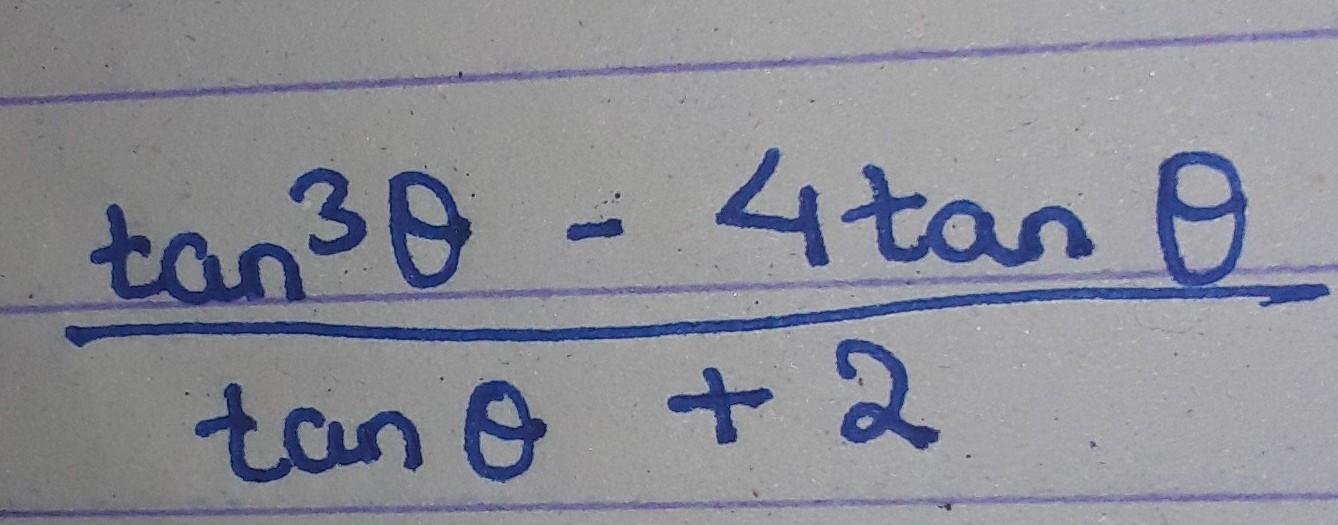 tan³θ - 4tan θ
tan θ + 2